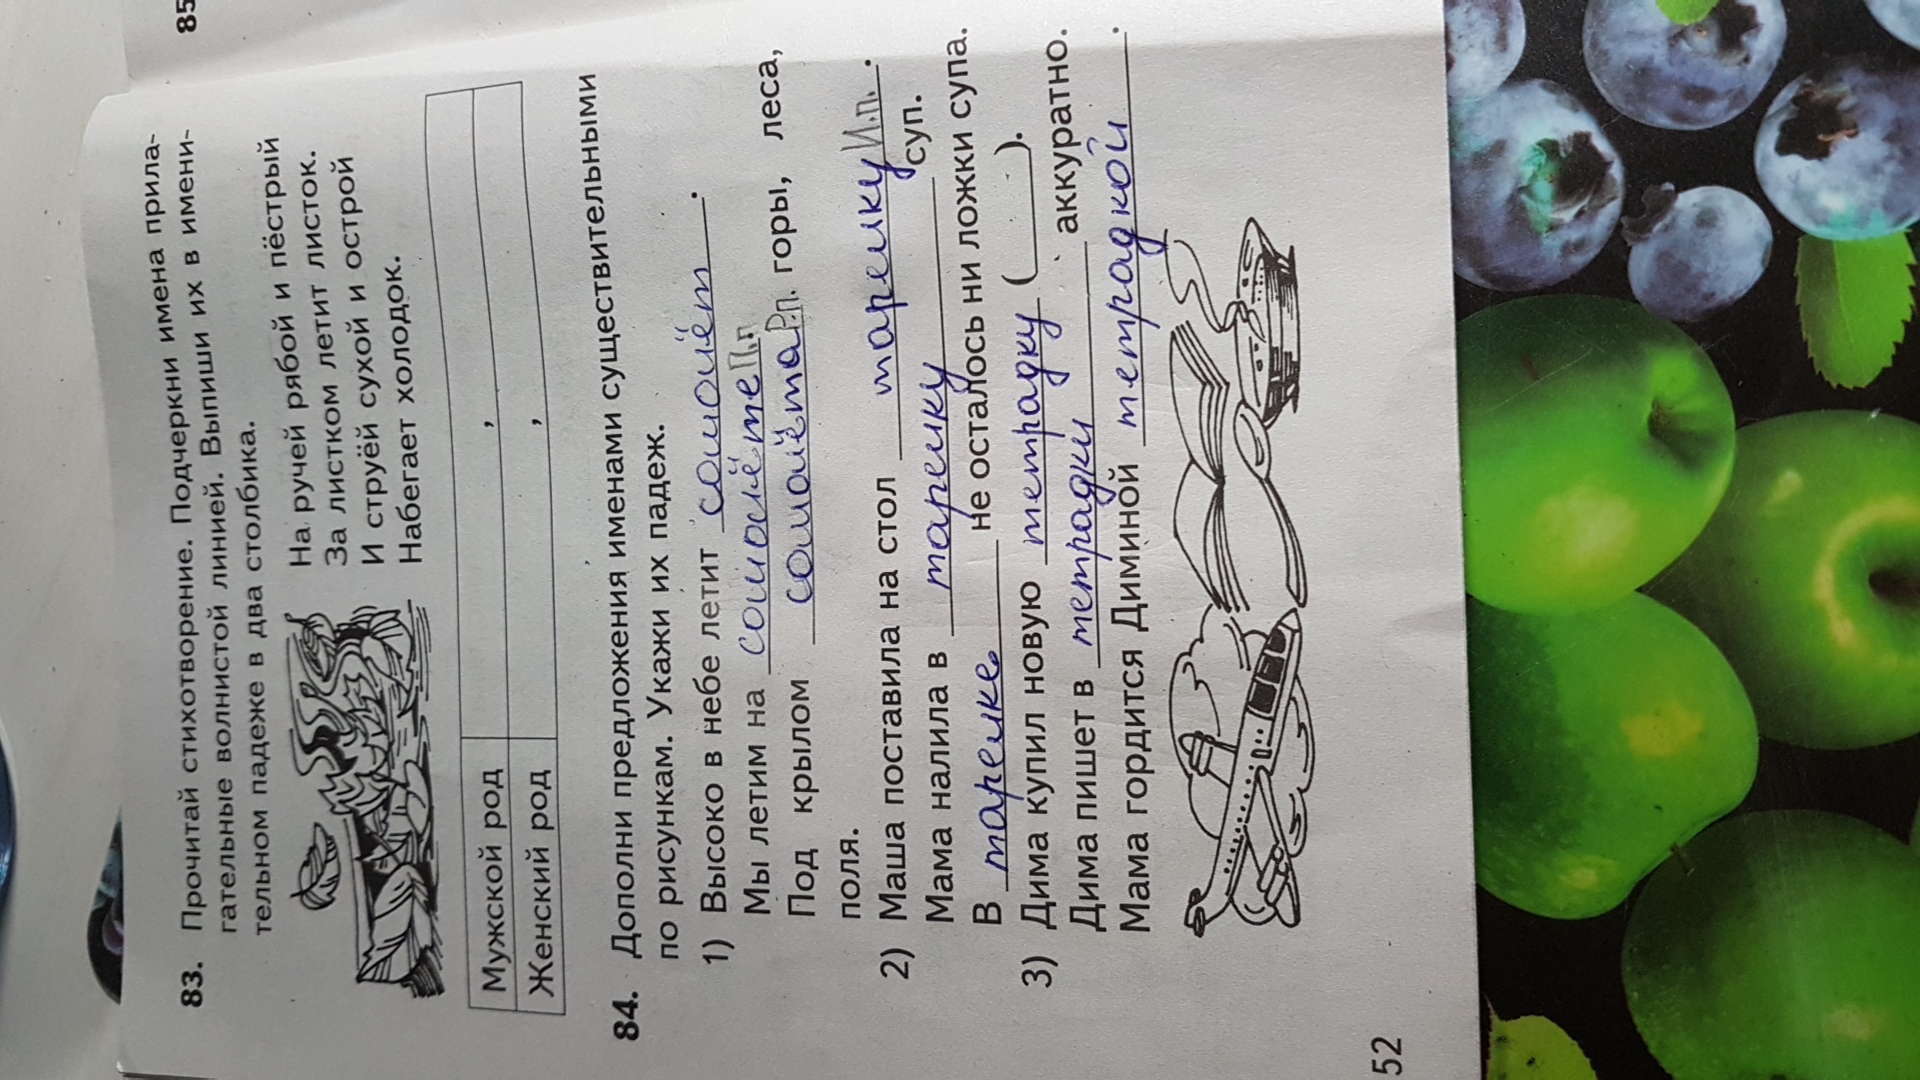 85
83. Прочитай стихотворение. Подчеркни имена прила-
гательные волнистой линией. Выпиши их в имени-
тельном падеже в два столбика.
На ручей рябой и пёстрый
За листком летит листок.
И струёй сухой и острой
Набегает холодок.
Мужской род ,
Женский род ,
84. Дополни предложения именами существительными
по рисункам. Укажи их падеж.
1) Высоко в небе летит самолёт.
Мы летим на самолёте П.п
Под крылом самолёта Р.п. горы, леса,
поля.
2) Маша поставила на стол тарелку И.п..
Мама налила в тарелку суп.
В тарелке не осталось ни ложки супа.
3) Дима купил новую тетрадку ( ).
Дима пишет в тетрадки аккуратно.
Мама гордится Диминой тетрадкой.
52